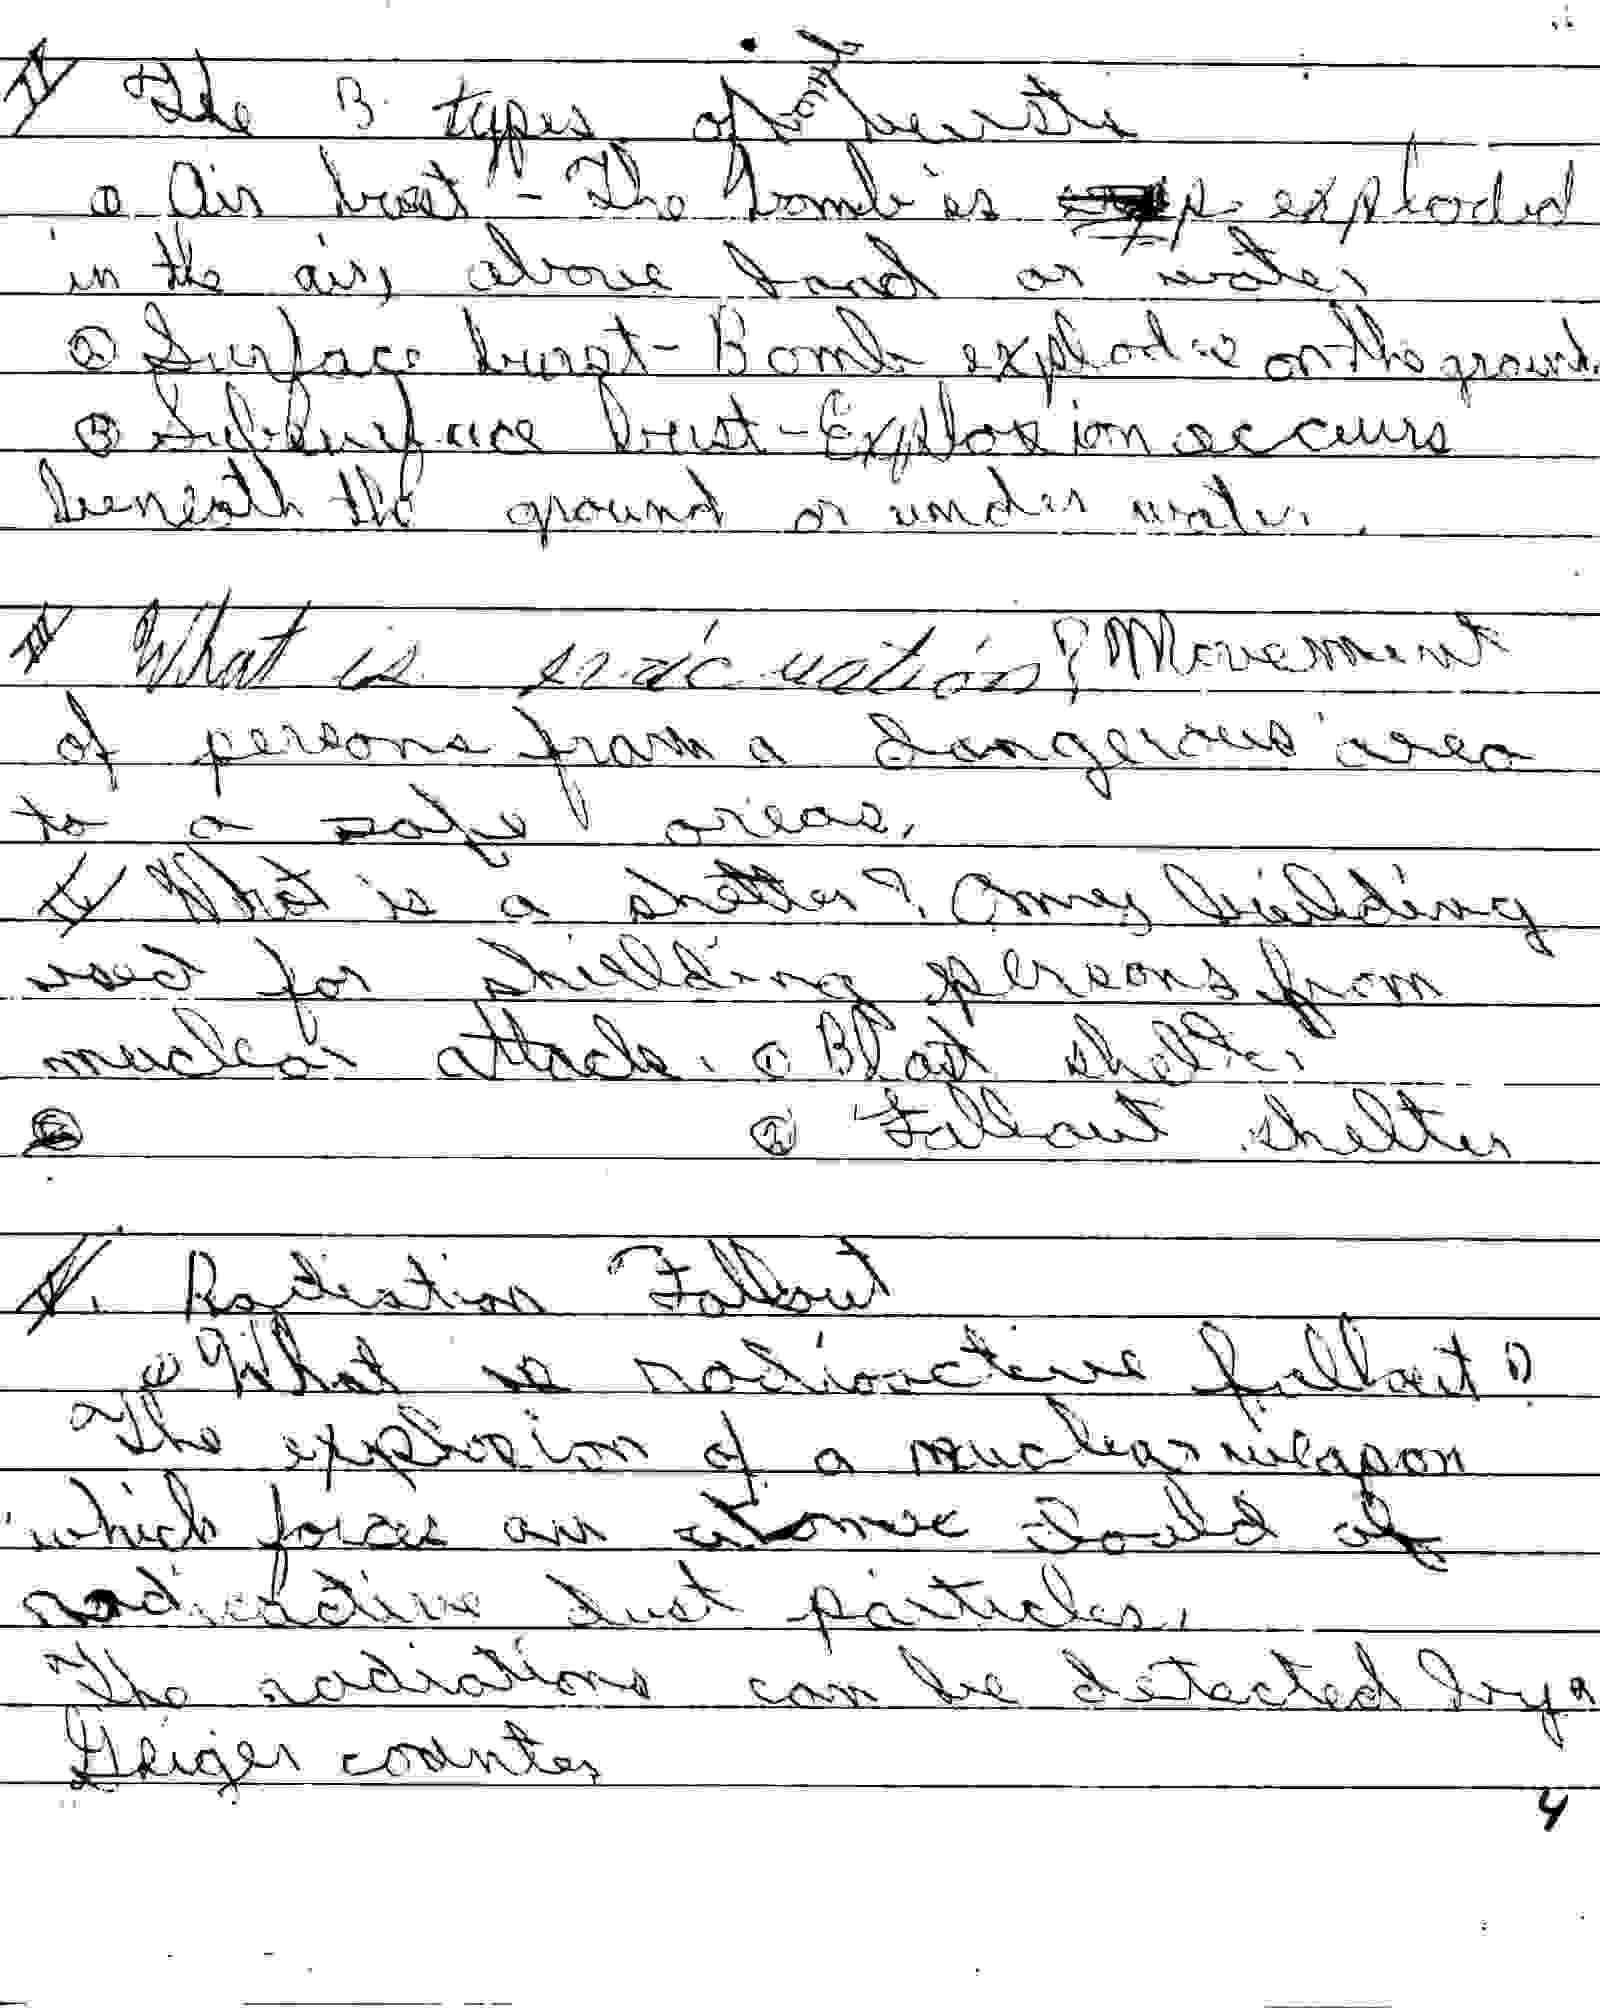 II The 3 types of bomb bursts
① Air burst - The bomb is exploded
in the air, above land or water
② Surface burst - Bomb explodes on the ground.
③ Subsurface burst - Explosion occurs
beneath the ground or under water.
III What is evacuation? Movement
of persons from a dangerous area
to a safe areas.
IV What is a shelter? Any building
used for shielding persons from
nuclear attack. ① Blast shelter
② Fallout shelter
V. Radiation Fallout
① What is radioactive fallout?
The explosion of a nuclear weapon
which forces an atomic cloud of
radioactive dust particles.
The radiations can be detected by a
Geiger counter
4